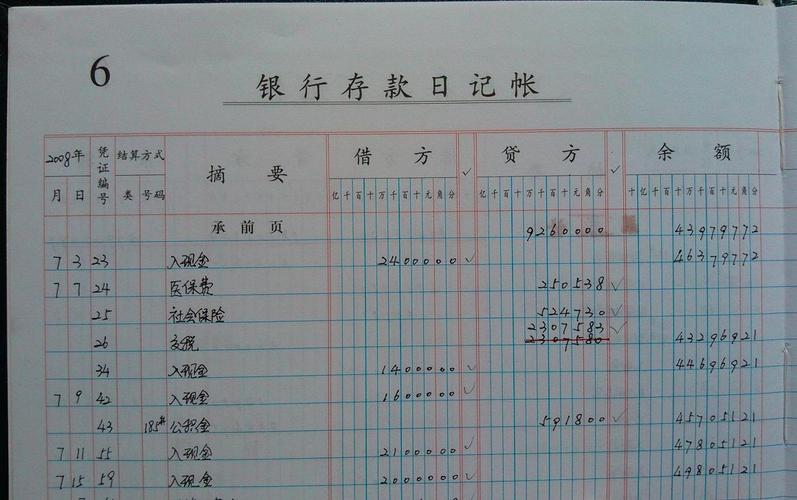 6
银行存款日记帐
2008年 凭证编号 结算方式 摘要 借方 ✓ 贷方 ✓ 余额
月 日 类 号码 亿千百十万千百十元角分 亿千百十万千百十元角分 亿千百十万千百十元角分
承前页 9260000 43979772
7 3 23 入现金 2400000 ✓ 46379772
7 7 24 医保费 250538 ✓
25 社会保险 524730 ✓
2307583 ✓
26 交税 2307580 43296921
34 入现金 1400000 ✓ 44696921
7 9 42 入现金 1600000 ✓
43 185# 公积金 591800 ✓ 45705121
7 11 55 入现金 2100000 ✓ 47805121
7 15 59 入现金 2000000 ✓ 49805121